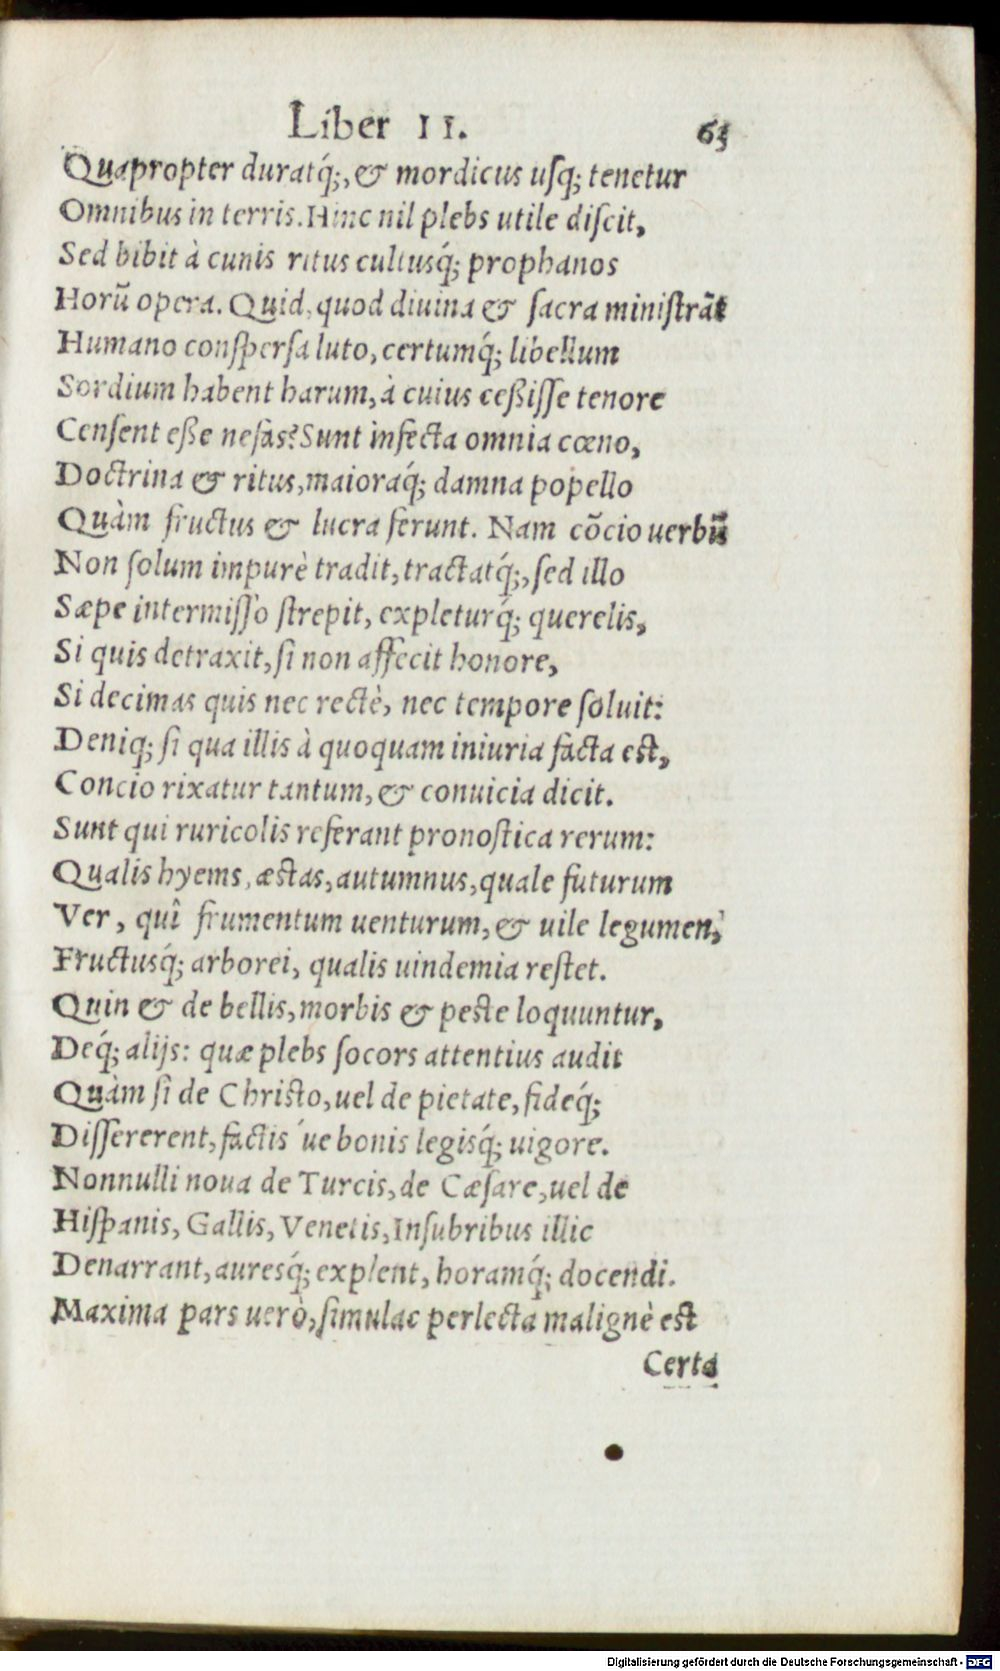 Liber II. 63
Quapropter duratq́;, & mordicus uſq; tenetur
Omnibus in terris. Hinc nil plebs utile diſcit,
Sed bibit à cunis ritus cultusq́; prophanos
Horũ opera. Quid, quod diuina & ſacra miniſtrãt
Humano conſperſa luto, certumq́; libellum
Sordium habent harum, à cuius ceßiſſe tenore
Cenſent eße nefas? Sunt infecta omnia cœno,
Doctrina & ritus, maioraq́; damna popello
Quàm fructus & lucra ferunt. Nam cõcio uerbũ
Non ſolum impurè tradit, tractatq́;, ſed illo
Sæpe intermiſſo ſtrepit, expleturq́; querelis,
Si quis detraxit, ſi non affecit honore,
Si decimas quis nec rectè, nec tempore ſoluit:
Deniq; ſi qua illis à quoquam iniuria facta est,
Concio rixatur tantum, & conuicia dicit.
Sunt qui ruricolis referant pronoſtica rerum:
Qualis hyems, æstas, autumnus, quale futurum
Ver, quî frumentum uenturum, & uile legumen,
Fructusq́; arborei, qualis uindemia reſtet.
Quin & de bellis, morbis & peste loquuntur,
Deq́; alijs: quæ plebs ſocors attentius audit
Quàm ſi de Christo, uel de pietate, fideq́;
Diſſererent, factis ue bonis legisq́; uigore.
Nonnulli noua de Turcis, de Cæſare, uel de
Hiſpanis, Gallis, Venetis, Inſubribus illic
Denarrant, auresq́; explent, horamq́; docendi.
Maxima pars uerò, ſimulac perlecta malignè est
Certa
Digitalisierung gefördert durch die Deutsche Forschungsgemeinschaft - DFG